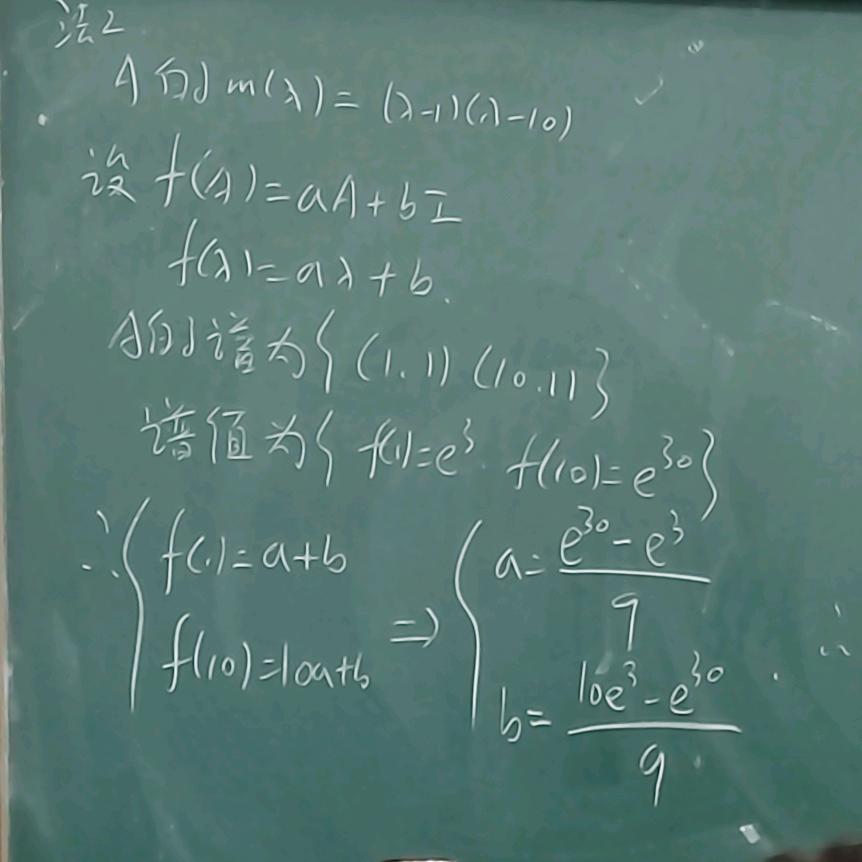 法2
A的 m(λ) = (λ-1)(λ-10)
设 f(A) = aA + bI
f(λ) = aλ + b.
A的谱为{(1.1) (10.1)}
谱值为{ f(1)=e³ f(10)=e³⁰}
∴ { f(1)=a+b ⇒ { a= (e³⁰-e³)/9
f(10)=10a+b b= (10e³-e³⁰)/9 . ∴